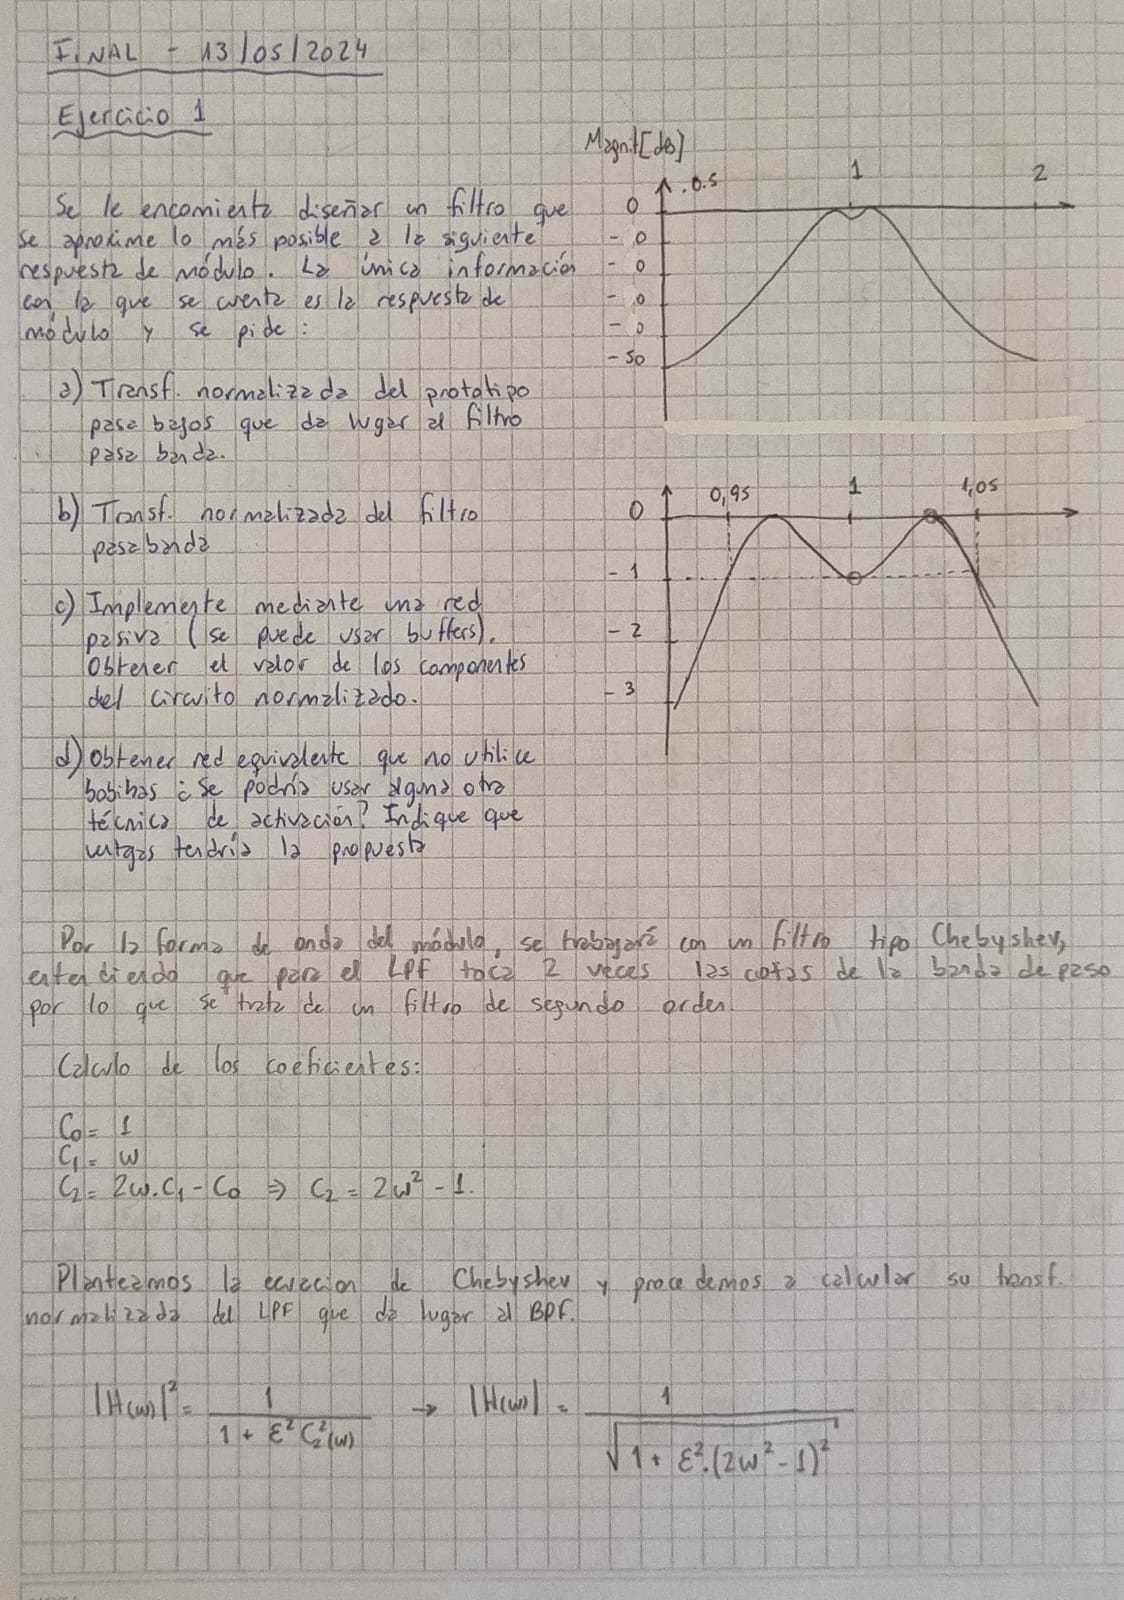 FINAL - 13/05/2024
Ejercicio 1
Se le encomienta diseñar un filtro que
se aproxime lo más posible a la siguiente
respuesta de módulo. La única información
con la que se cuenta es la respuesta de
módulo y se pide:
a) Transf. normalizada del prototipo
pasa bajos que da lugar al filtro
pasa banda.
b) Transf. normalizada del filtro
pasabanda
c) Implemente mediante una red
pasiva (se puede usar buffers).
Obtener el valor de los componentes
del circuito normalizado.
d) Obtener red equivalente que no utilice
bobinas ¿Se podría usar alguna otra
técnica de activación? Indique que
tendría la propuesta
Magnit[db]
.0.5 1 2
0
-0
-0
-0
-0
-50
0,95 1 1,05
0
-1
-2
-3
Por la forma de onda del módulo, se trabajará con un filtro tipo Chebyshev,
entendiendo que para el LPF toca 2 veces las cotas de la banda de paso
por lo que se trata de un filtro de segundo orden.
Calculo de los coeficientes:
C0 = 1
C1 = w
C2 = 2w.C1 - C0 ⇒ C2 = 2w² - 1.
Planteamos la ecuacion de Chebyshev y procedemos a calcular su transf.
normalizada del LPF que da lugar al BPF.
|H(w)|² = 1 / (1 + ε² C2²(w)) → |H(w)| = 1 / √(1 + ε².(2w² - 1)²)